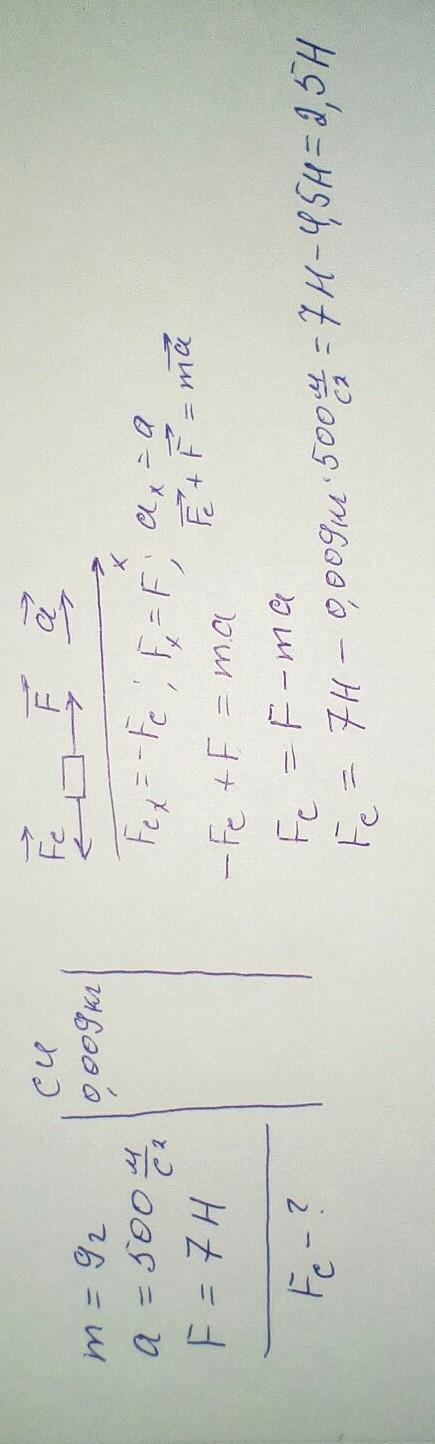 m = 9г
a = 500 м/с²
F = 7 Н
Fc - ?
СИ
0,009 кг
F⃗c F⃗ a⃗
x
Fcₓ = -Fc; Fₓ = F; aₓ = a
F⃗c + F⃗ = ma⃗
-Fc + F = ma
Fc = F - ma
Fc = 7Н - 0,009кг · 500 м/с² = 7Н - 4,5Н = 2,5Н